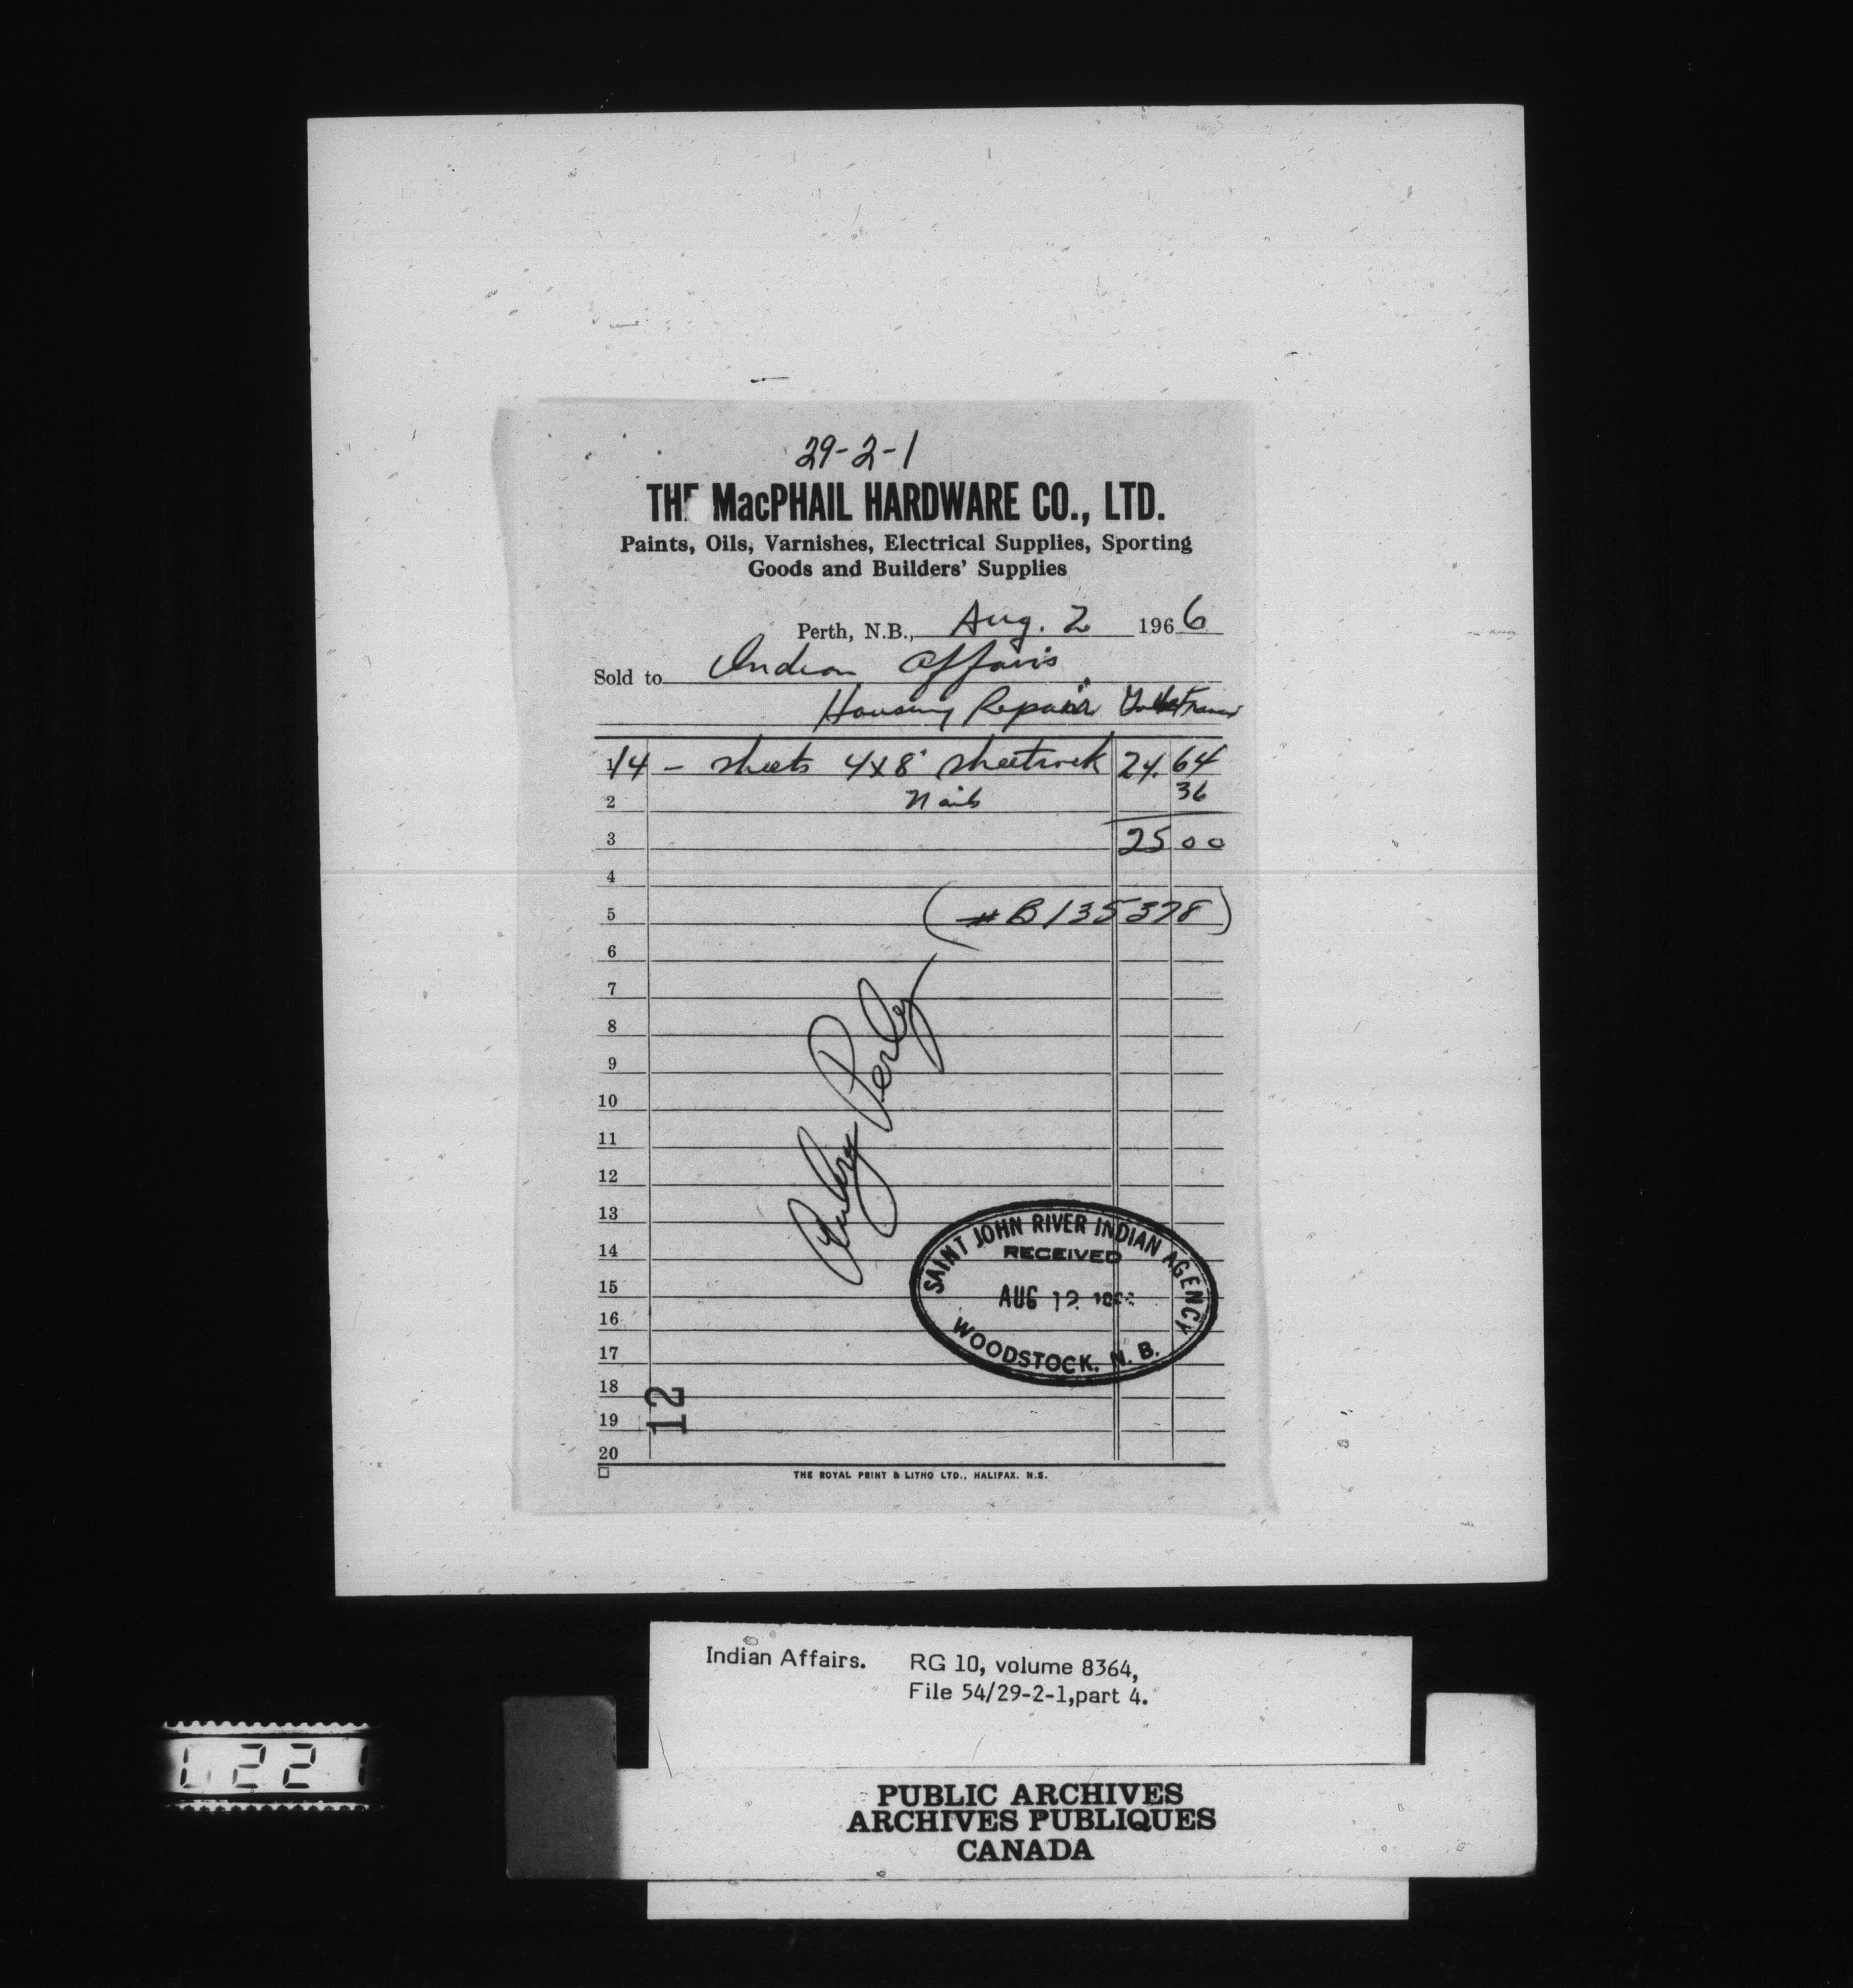 29-2-1
THE MacPHAIL HARDWARE CO., LTD.
Paints, Oils, Varnishes, Electrical Supplies, Sporting
Goods and Builders' Supplies
Perth, N.B., Aug. 2 1966
Sold to Indian Affairs
Housing Repair
1 14 - sheets 4x8' sheetrock 24.64
2 Nails 36
3 25 00
4
5 (#B135378)
6
7
8
9
10
11
12
13
14
15
16
17
18
19
20
Perley
SAINT JOHN RIVER INDIAN AGENCY
RECEIVED
AUG 12
WOODSTOCK, N. B.
12
THE ROYAL PRINT & LITHO LTD., HALIFAX, N.S.
Indian Affairs. RG 10, volume 8364,
File 54/29-2-1,part 4.
221
PUBLIC ARCHIVES
ARCHIVES PUBLIQUES
CANADA